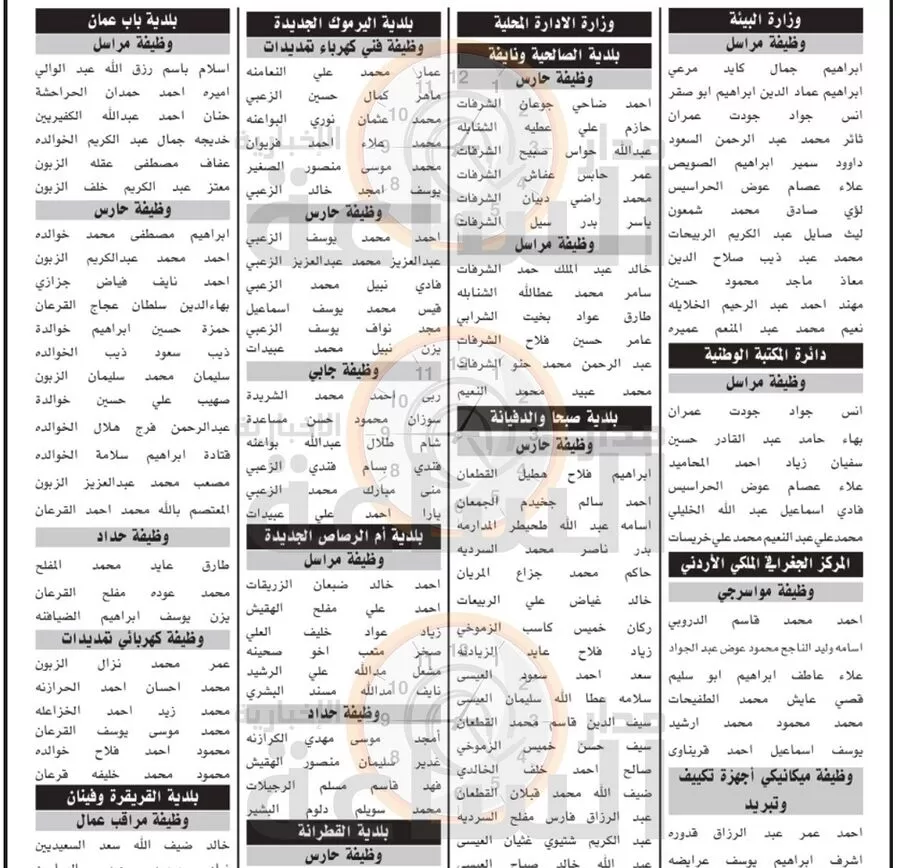 وزارة البيئة
وظيفة مراسل
ابراهيم جمال كايد مرعي
ابراهيم عماد الدين ابراهيم ابو صقر
انس جواد جودت عمران
ثائر محمد عبد الرحمن السعود
داوود سمير ابراهيم الصويص
علاء عصام عوض الحراسيس
لؤي صادق محمد شمعون
ليث صايل عبد الكريم الربيحات
محمد عبد ذيب صلاح الدين
معاذ ماجد محمود حسين
مهند احمد عبد الرحيم الخلايله
نعيم محمد عبد المنعم عميره
دائرة المكتبة الوطنية
وظيفة مراسل
انس جواد جودت عمران
بهاء حامد عبد القادر حسين
سفيان زياد احمد المحاميد
علاء عصام عوض الحراسيس
فادي اسماعيل عبد الله الخليلي
محمد علي عبد النعيم محمد علي خريسات
المركز الجغرافي الملكي الأردني
وظيفة مواسرجي
احمد محمد قاسم الدروبي
اسامه وليد الناجح محمود عوض عبد الجواد
علاء عاطف ابراهيم ابو سليم
قصي عايش محمد الطفيحات
محمد محمود محمد ارشيد
يوسف اسماعيل احمد قريناوي
وظيفة ميكانيكي أجهزة تكييف
وتبريد
احمد عمر عبد الرزاق قدوره
اشرف ابراهيم يوسف عرايضه
وزارة الادارة المحلية
بلدية الصالحية ونايفة
وظيفة حارس
احمد ضاحي جوعان الشرفات
حازم علي عطيه الشنابله
عبدالله حواس صبيح الشرفات
عمر حابس عفاش الشرفات
محمد راضي دبيان الشرفات
ياسر بدر سيل الشرفات
وظيفة مراسل
خالد عبد الملك حمد الشرفات
سامر محمد عطاالله الشنابله
طارق عواد بخيت الشرابي
عامر حسين فلاح الشرفات
عبد الرحمن محمد حنو الشرفات
محمد عبيد محمد النعيم
بلدية صبحا والدفيانة
وظيفة حارس
ابراهيم فلاح هطيل القطعان
احمد سالم جخيدم الجمعان
اسامه عبد الله طحيطر المدارمه
بدر ناصر محمد السرديه
حاكم محمد جزاع المريان
خالد غياض علي الربيعات
ركان خميس كاسب الزموخي
زياد فلاح عايد الزيادنه
سعد احمد سعود العيسى
سلامه عطا الله سليمان العيسى
سيف الدين قاسم محمد القطعان
سيف حسن خميس الزموخي
صالح احمد خلف الخالدي
ضيف الله محمد قبلان القطعان
عبد الرزاق فارس مفلح السرديه
عبد الكريم شتيوي غثيان العيسى
عبد الله خالد صياح العيسى
بلدية اليرموك الجديدة
وظيفة فني كهرباء تمديدات
عمار محمد علي النعامنه
ماهر كمال حسين الزعبي
محمد عثمان نوري البواعنه
محمد علاء احمد فزيوان
محمد موسى منصور الصغير
يوسف امجد خالد الزعبي
وظيفة حارس
احمد محمد يوسف الزعبي
عبدالعزيز محمد عبدالعزيز الزعبي
فادي نبيل محمد الزعبي
قيس محمد يوسف اسماعيل
مجد نواف يوسف الزعبي
يزن نبيل محمد عبيدات
وظيفة جابي
ربى احمد محمد الشريدة
سوزان محمود حسن مساعدة
شام طلال عبدالله بواعنه
فندي بسام فندي الزعبي
منى مبارك محمد الزعبي
يارا احمد علي عبيدات
بلدية أم الرصاص الجديدة
وظيفة مراسل
احمد خالد ضبعان الزريقات
احمد علي مفلح الهقيش
زياد عواد خليف العلي
صخر متعب اخو صحينه
مشعل مدالله علي الرشيد
نايف مدالله مسند البشري
وظيفة حداد
أمجد موسى مهدي الكرازنه
غدير سليمان منصور الهقيش
فهد قاسم مسلم الرحيلات
محمد سويلم دلوم البشير
بلدية القطرانة
وظيفة حارس
بلدية باب عمان
وظيفة مراسل
اسلام باسم رزق الله عبد الوالي
اميره احمد حمدان الحراحشة
حنان احمد عبدالله الكفيريين
خديجه جمال عبد الكريم الخوالده
عفاف مصطفى عقله الزبون
معتز عبد الكريم خلف الزبون
وظيفة حارس
ابراهيم مصطفى محمد خوالده
احمد محمد عبدالكريم الزبون
احمد نايف فياض جزازي
بهاءالدين سلطان عجاج القرعان
حمزة حسين ابراهيم خوالدة
ذيب سعود ذيب الخوالده
سليمان محمد سليمان الزبون
صهيب علي حسين خوالدة
عبدالرحمن فرج هلال الخوالده
قتادة ابراهيم سلامة الخوالده
مصعب محمد عبدالعزيز الزبون
المعتصم بالله محمد احمد القرعان
وظيفة حداد
طارق عايد محمد المفلح
محمد عوده مفلح القرعان
يزن يوسف ابراهيم الضيافنه
وظيفة كهربائي تمديدات
عمر محمد نزال الزبون
محمد احسان احمد الحرازنه
محمد زيد احمد الخزاعله
محمد موسى يوسف القرعان
محمود احمد فلاح خوالده
محمود محمد خليفه قرعان
بلدية القريقرة وفينان
وظيفة مراقب عمال
خالد ضيف الله سعد السعيديين